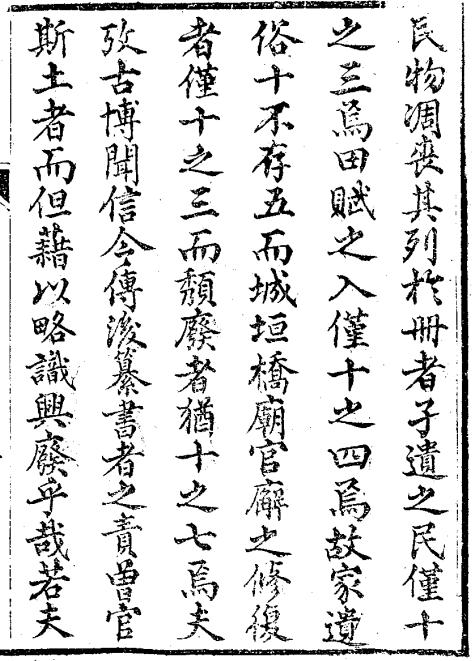 民物凋喪其列於冊者孑遺之民僅十
之三焉田賦之入僅十之四焉故家遺
俗十不存五而城垣橋廟官廨之修復
者僅十之三而頽廢者猶十之七焉夫
攷古博聞信今傳後纂書者之責曽官
斯土者而但藉以略識興廢乎哉若夫